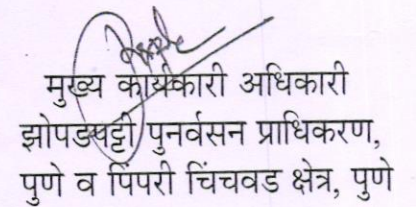 मुख्य कार्यकारी अधिकारी
झोपडपट्टी पुनर्वसन प्राधिकरण,
पुणे व पिंपरी चिंचवड क्षेत्र, पुणे